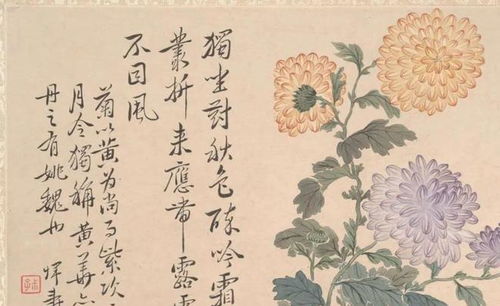 獨坐對秋色酥吟霜
叢折来應帶露
不因風
菊以黃為尚而紫次
月令獨稱黃華
丹之有姚魏也 惲壽